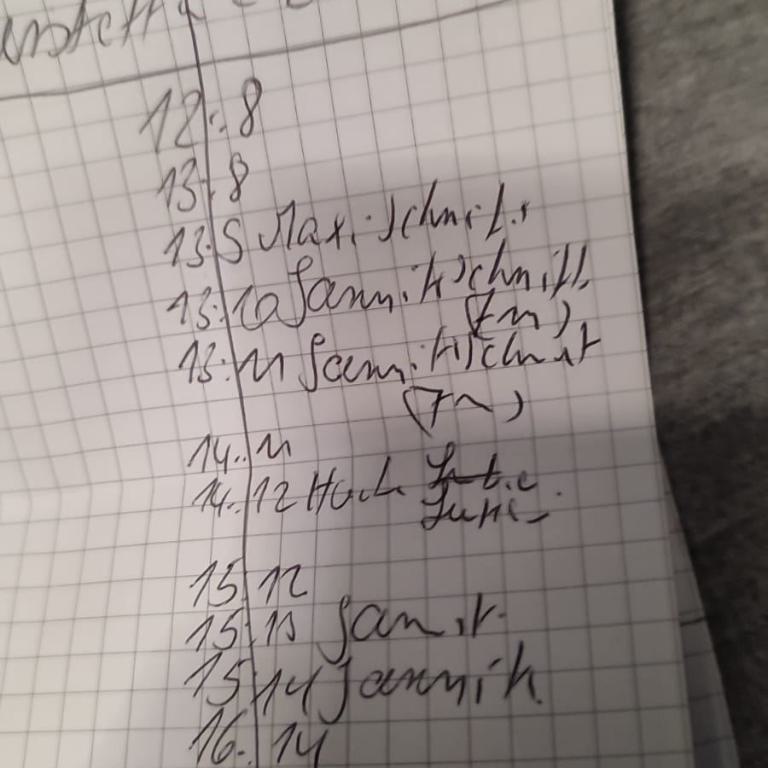 12:8
13:8
13:9 Maxi Schnitt
13:10 Jannik Schnitt
(7m)
13:11 Jannik Schnitt
(7m)
14:11
14:12 Hoch
15:12
15:13 Jannik
15:14 Jannik
16:14